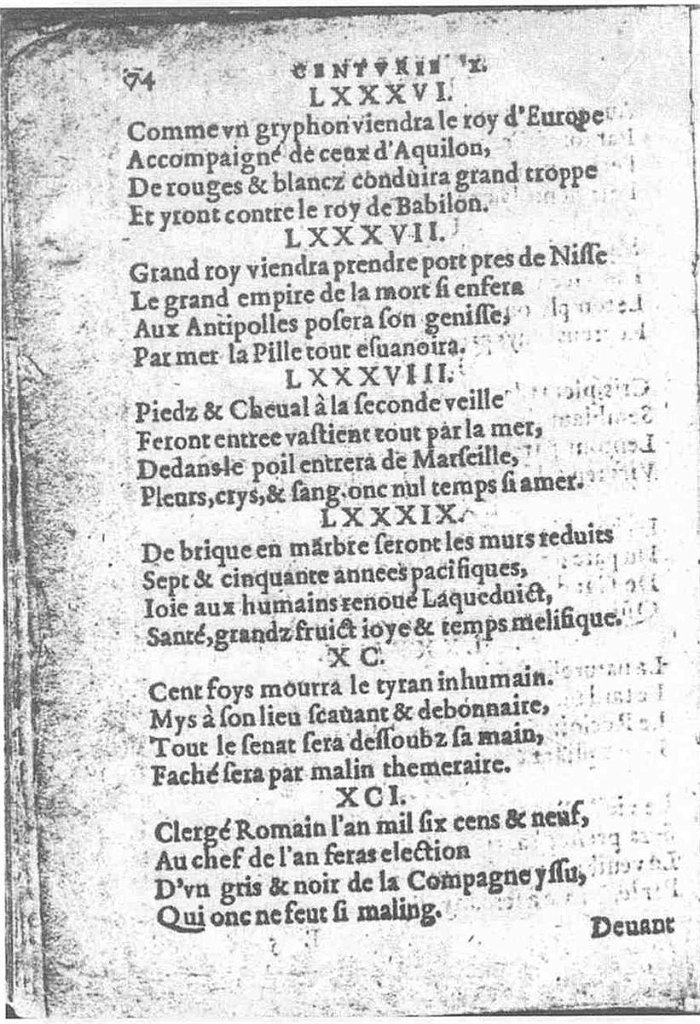 74
CENTVRIE X.
LXXXVI.
Comme vn gryphon viendra le roy d'Europe
Accompaigné de ceux d'Aquilon,
De rouges & blancz conduira grand troppe
Et yront contre le roy de Babilon.
LXXXVII.
Grand roy viendra prendre port pres de Nisse
Le grand empire de la mort si enfera
Aux Antipolles posera son genisse,
Par mer la Pille tout esuanoira.
LXXXVIII.
Piedz & Cheual à la seconde veille
Feront entree vastient tout par la mer,
Dedans le poil entrera de Marseille,
Pleurs, crys, & sang. onc nul temps si amer.
LXXXIX.
De brique en marbre seront les murs reduits
Sept & cinquante annees pacifiques,
Ioie aux humains renoué Laqueduict,
Santé, grandz fruict ioye & temps melifique.
XC.
Cent foys mourra le tyran inhumain.
Mys à son lieu scauant & debonnaire,
Tout le senat sera dessoubz sa main,
Faché sera par malin themeraire.
XCI.
Clergé Romain l'an mil six cens & neuf,
Au chef de l'an feras election
D'vn gris & noir de la Compagne yssu,
Qui onc ne feut si maling.
Deuant